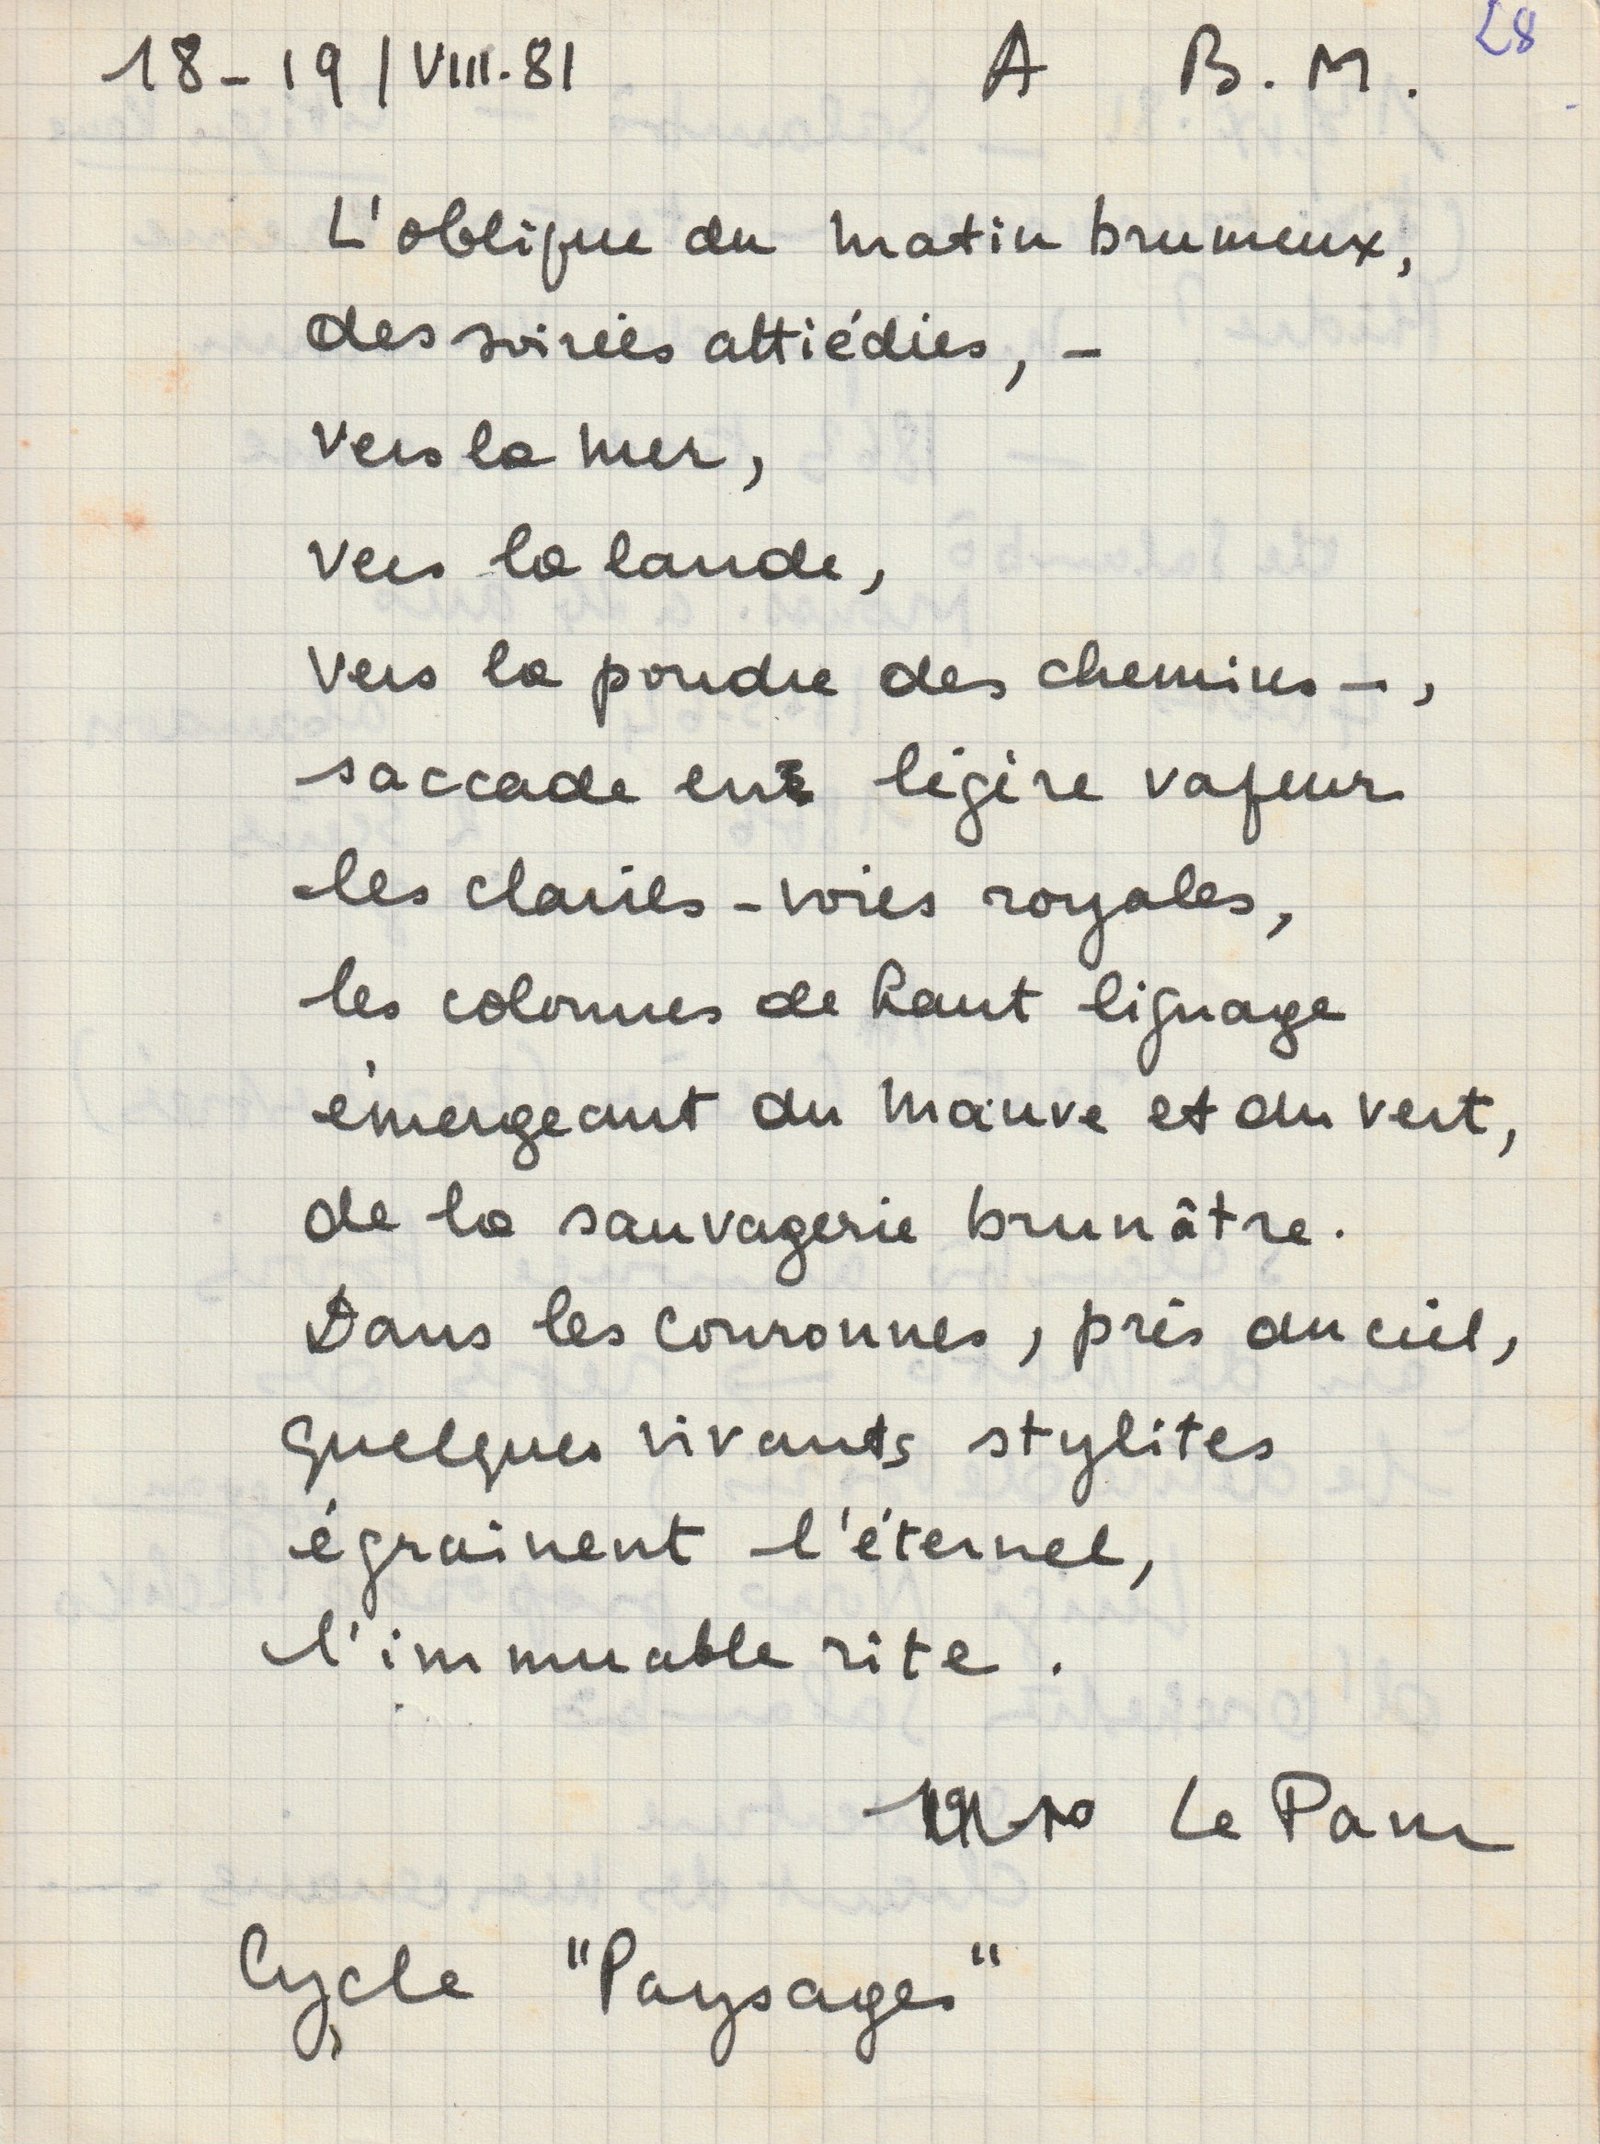 28
18-19/VIII.81 A B.M.
L'oblique du matin brumeux,
des soirées attiédies, -
vers la mer,
vers la lande,
vers la poudre des chemins -,
saccade en légère vapeur
les claires-voies royales,
les colonnes de haut lignage
émergeant du mauve et du vert,
de la sauvagerie brunâtre.
Dans les couronnes, près du ciel,
quelques vivants stylites
égrainent l'éternel,
l'immuable rite.
Le Pam
Cycle "Paysages"